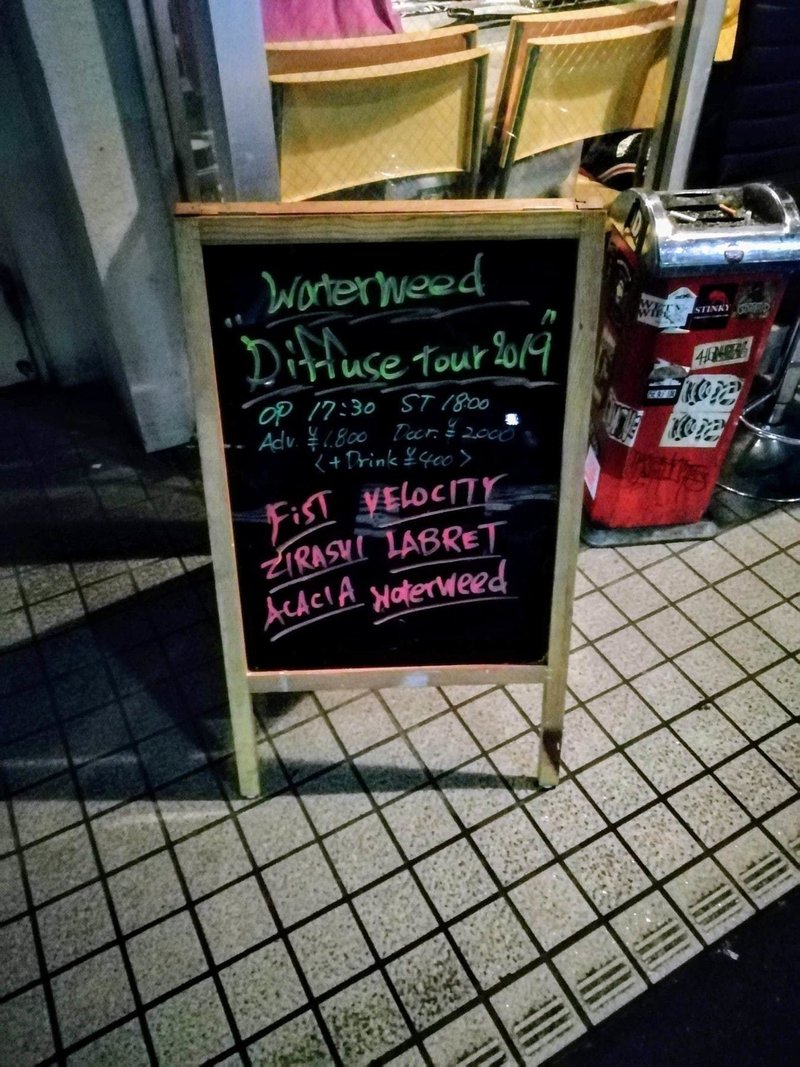 waterweed
"Diffuse tour 2019"
OP 17:30 ST 18:00
Adv. ¥1.800 Door. ¥2.000
<+Drink ¥400>
FiST VELOCITY
ZIRASUI LABRET
ACACIA waterweed
STINKY